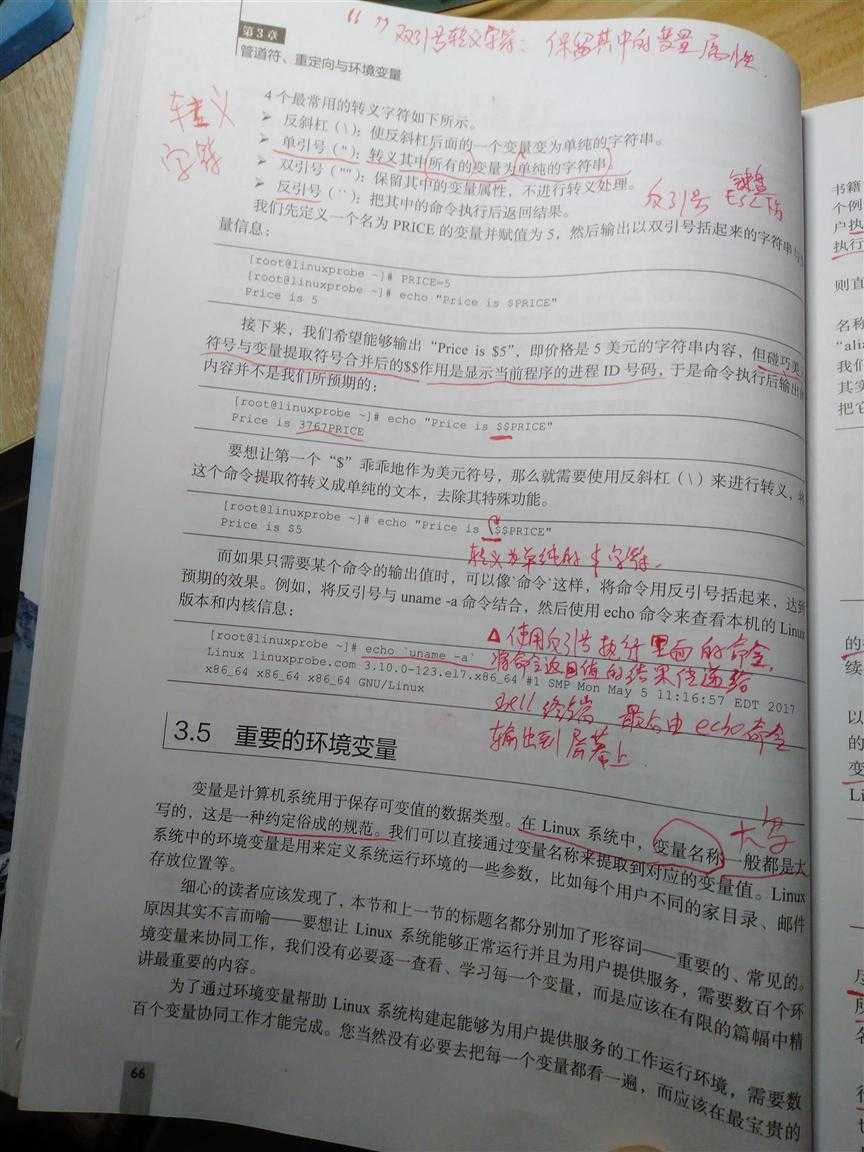 “ ” 双引号转义字符：保留其中的变量属性.
第3章
管道符、重定向与环境变量
转义
字符
4个最常用的转义字符如下所示。
➢ 反斜杠（\）：使反斜杠后面的一个变量变为单纯的字符串。
➢ 单引号（''）：转义其中所有的变量为单纯的字符串。
➢ 双引号（""）：保留其中的变量属性，不进行转义处理。
➢ 反引号（``）：把其中的命令执行后返回结果。
反引号 键盘
ESC下
我们先定义一个名为 PRICE 的变量并赋值为 5，然后输出以双引号括起来的字符串与
量信息：
[root@linuxprobe ~]# PRICE=5
[root@linuxprobe ~]# echo "Price is $PRICE"
Price is 5
接下来，我们希望能够输出“Price is $5”，即价格是 5 美元的字符串内容，但碰巧美
符号与变量提取符号合并后的$$作用是显示当前程序的进程 ID 号码，于是命令执行后输出的
内容并不是我们所预期的：
[root@linuxprobe ~]# echo "Price is $$PRICE"
Price is 3767PRICE
要想让第一个“$”乖乖地作为美元符号，那么就需要使用反斜杠（\）来进行转义，
这个命令提取符转义成单纯的文本，去除其特殊功能。
[root@linuxprobe ~]# echo "Price is \$$PRICE"
Price is $5
转义为单纯的 $ 字符.
而如果只需要某个命令的输出值时，可以像`命令`这样，将命令用反引号括起来，达到
预期的效果。例如，将反引号与 uname -a 命令结合，然后使用 echo 命令来查看本机的 Linux
版本和内核信息：
[root@linuxprobe ~]# echo `uname -a`
Linux linuxprobe.com 3.10.0-123.el7.x86_64 #1 SMP Mon May 5 11:16:57 EDT 2017
x86_64 x86_64 x86_64 GNU/Linux
△ 使用反引号执行里面的命令,
将命令返回值的结果传递给
shell 终端 最后由 echo 命令
输出到屏幕上.
3.5 重要的环境变量
大写
变量是计算机系统用于保存可变值的数据类型。在 Linux 系统中，变量名称一般都是大
写的，这是一种约定俗成的规范。我们可以直接通过变量名称来提取到对应的变量值。Linux
系统中的环境变量是用来定义系统运行环境的一些参数，比如每个用户不同的家目录、邮件
存放位置等。
细心的读者应该发现了，本节和上一节的标题名都分别加了形容词——重要的、常见的。
原因其实不言而喻——要想让 Linux 系统能够正常运行并且为用户提供服务，需要数百个环
境变量来协同工作，我们没有必要逐一查看、学习每一个变量，而是应该在有限的篇幅中精
讲最重要的内容。
为了通过环境变量帮助 Linux 系统构建起能够为用户提供服务的工作运行环境，需要数
百个变量协同工作才能完成。您当然没有必要去把每一个变量都看一遍，而应该在最宝贵的
66
书籍
个例
户执
执行
则直
名称
“alia
我们
其实
把它
的
续
以
的
变
Li